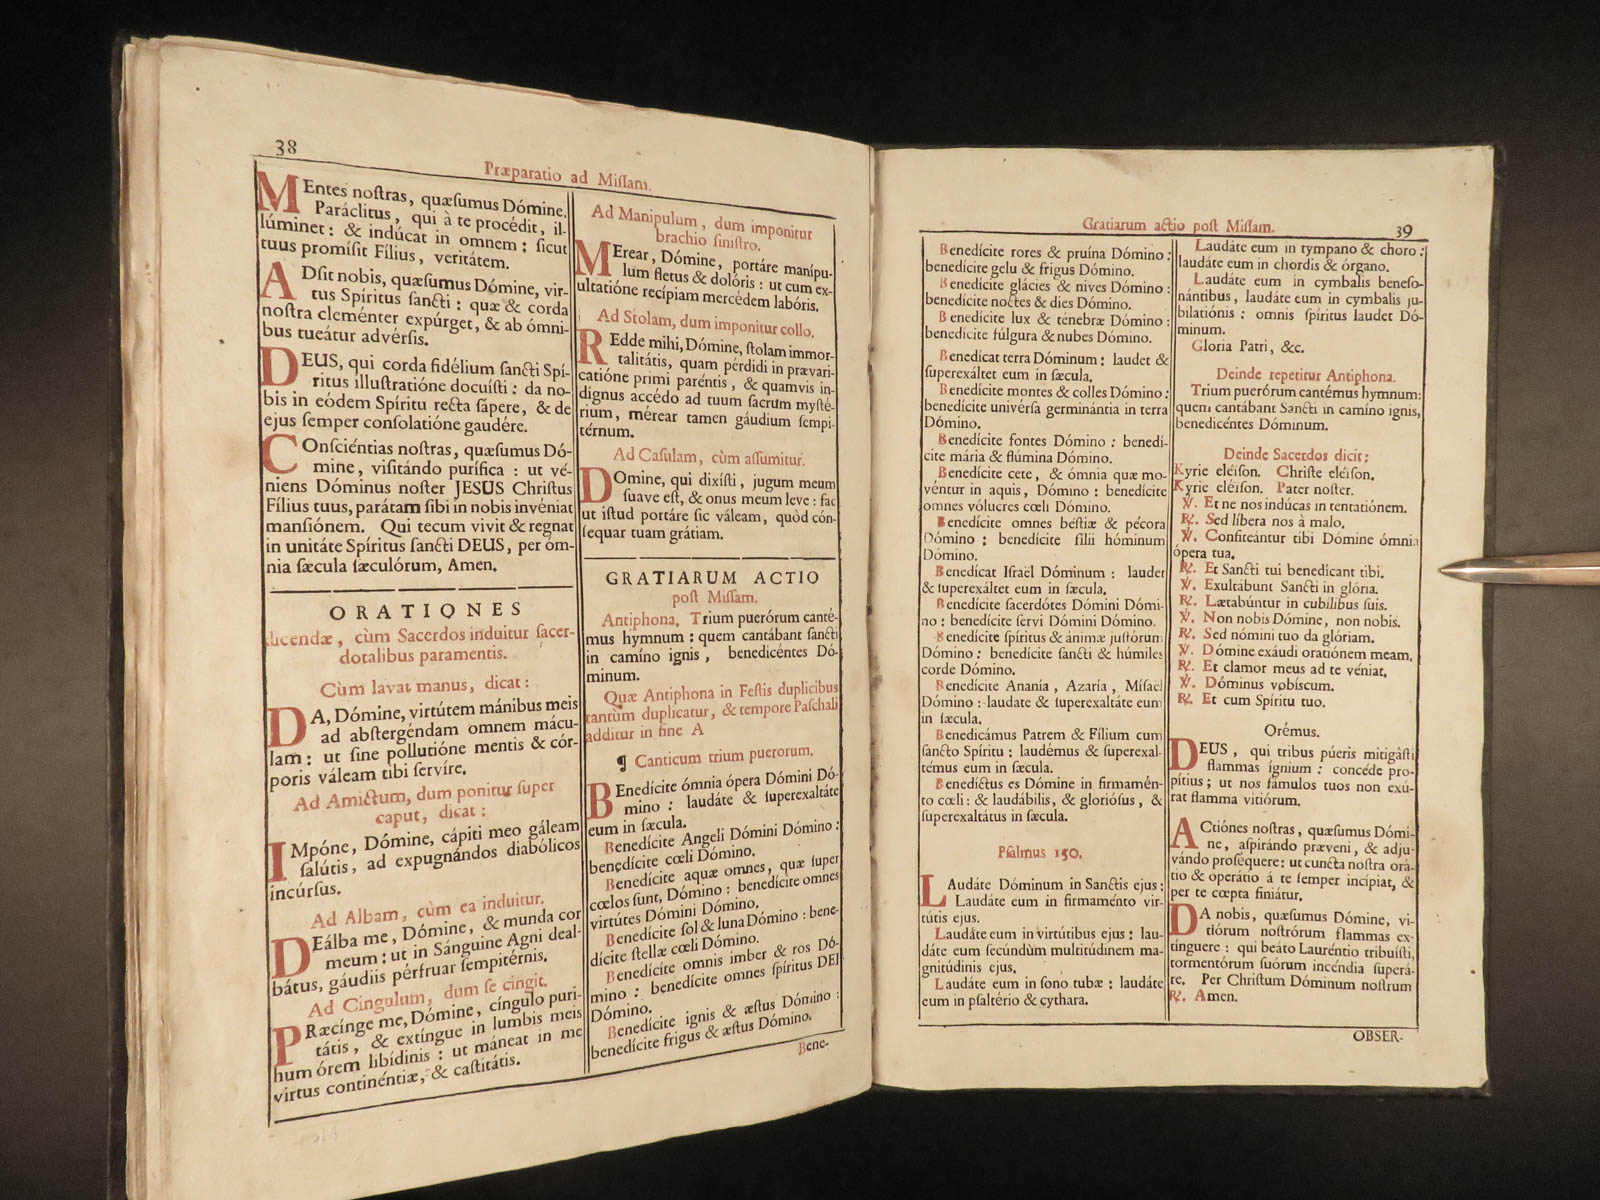 38
Præparatio ad Miſſam.
MEntes noſtras, quæſumus Dómine,
Paráclitus, qui à te procédit, il-
lúminet: & indúcat in omnem: ſicut
tuus promíſit Fílius, veritátem.
ADſit nobis, quæſumus Dómine, vir-
tus Spíritus ſancti: quæ & corda
noſtra cleménter expúrget, & ab ómni-
bus tueátur advérſis.
DEUS, qui corda fidélium ſancti Spí-
ritus illuſtratióne docuíſti: da no-
bis in eódem Spíritu recta ſápere, & de
ejus ſemper conſolatióne gaudére.
COnſciéntias noſtras, quæſumus Dó-
mine, viſitándo puriſica: ut vé-
niens Dóminus noſter JESUS Chriſtus
Fílius tuus, parátam ſibi in nobis invéniat
manſiónem. Qui tecum vivit & regnat
in unitáte Spíritus ſancti DEUS, per óm-
nia ſæcula ſæculórum, Amen.
ORATIONES
dicendæ, cùm Sacerdos induitur ſacer-
dotalibus paramentis.
Cùm lavat manus, dicat:
DA, Dómine, virtútem mánibus meis
ad abſtergéndam omnem mácu-
lam: ut ſine pollutióne mentis & cór-
poris váleam tibi ſervíre.
Ad Amictum, dum ponitur ſuper
caput, dicat:
IMpóne, Dómine, cápiti meo gáleam
ſalútis, ad expugnándos diabólicos
incúrſus.
Ad Albam, cùm ea induitur.
DEálba me, Dómine, & munda cor
meum: ut in Sánguine Agni deal-
bátus, gáudiis pérfruar ſempitérnis.
Ad Cingulum, dum ſe cingit.
PRæcínge me, Dómine, cíngulo puri-
tátis, & extíngue in lumbis meis
humórem libídinis: ut máneat in me
virtus continéntiæ, & caſtitátis.
Ad Manipulum, dum imponitur
brachio ſiniſtro.
MErear, Dómine, portáre manípu-
lum fletus & dolóris: ut cum ex-
ultatióne recípiam mercédem labóris.
Ad Stolam, dum imponitur collo.
REdde mihi, Dómine, ſtolam immor-
talitátis, quam pérdidi in prævari-
catióne primi paréntis, & quamvis in-
dígnus accédo ad tuum ſacrum myſté-
rium, mérear tamen gáudium ſempi-
térnum.
Ad Caſulam, cùm aſſumitur.
DOmine, qui dixíſti, jugum meum
ſuave eſt, & onus meum leve: fac
ut iſtud portáre ſic váleam, quòd cón-
ſequar tuam grátiam.
GRATIARUM ACTIO
poſt Miſſam.
Antiphona. Trium puerórum canté-
mus hymnum: quem cantábant ſancti
in camíno ignis, benedicéntes Dó-
minum.
Quæ Antiphona in Feſtis duplicibus
tantùm duplicatur, & tempore Paſchali
additur in fine A
¶ Canticum trium puerorum.
BEnedícite ómnia ópera Dómini Dó-
mino: laudáte & ſuperexaltáte
eum in ſæcula.
Benedícite Angeli Dómini Dómino:
benedícite cœli Dómino.
Benedícite aquæ omnes, quæ ſuper
cœlos ſunt, Dómino: benedícite omnes
virtútes Dómini Dómino.
Benedícite ſol & luna Dómino: bene-
dícite ſtellæ cœli Dómino.
Benedícite omnis imber & ros Dó-
mino: benedícite omnes ſpíritus DEI
Dómino.
Benedícite ignis & æſtus Dómino:
benedícite frigus & æſtus Dómino.
Bene-
Gratiarum actio poſt Miſſam.
39
Benedícite rores & pruína Dómino:
benedícite gelu & frigus Dómino.
Benedícite glácies & nives Dómino:
benedícite noctes & dies Dómino.
Benedícite lux & ténebræ Dómino:
benedícite fúlgura & nubes Dómino.
Benedícat terra Dóminum: laudet &
ſuperexáltet eum in ſæcula.
Benedícite montes & colles Dómino:
benedícite univérſa germinántia in terra
Dómino.
Benedícite fontes Dómino: benedí-
cite mária & flúmina Dómino.
Benedícite cete, & ómnia quæ mo-
véntur in aquis, Dómino: benedícite
omnes vólucres cœli Dómino.
Benedícite omnes béſtiæ & pécora
Dómino: benedícite fílii hóminum
Dómino.
Benedícat Iſraël Dóminum: laudet
& ſuperexáltet eum in ſæcula.
Benedícite ſacerdótes Dómini Dómi-
no: benedícite ſervi Dómini Dómino.
Benedícite ſpíritus & ánimæ juſtórum
Dómino: benedícite ſancti & húmiles
corde Dómino.
Benedícite Ananía, Azaría, Míſaël
Dómino: laudate & ſuperexaltáte eum
in ſæcula.
Benedicámus Patrem & Fílium cum
ſancto Spíritu: laudémus & ſuperexal-
témus eum in ſæcula.
Benedíctus es Dómine in firmamén-
to cœli: & laudábilis, & glorióſus, &
ſuperexaltátus in ſæcula.
Pſalmus 150.
LAudáte Dóminum in Sanctis ejus:
Laudáte eum in firmaménto vir-
tútis ejus.
Laudáte eum in virtútibus ejus: lau-
dáte eum ſecúndùm multitúdinem ma-
gnitúdinis ejus.
Laudáte eum in ſono tubæ: laudáte
eum in pſaltério & cythara.
Laudáte eum in tympano & choro:
laudáte eum in chordis & órgano.
Laudáte eum in cymbalis beneſo-
nántibus, laudáte eum in cymbalis ju-
bilatiónis: omnis ſpíritus laudet Dó-
minum.
Gloria Patri, &c.
Deinde repetitur Antiphona.
Trium puerórum cantémus hymnum:
quem cantábant Sancti in camíno ignis,
benedicéntes Dóminum.
Deinde Sacerdos dicit:
Kyrie eléiſon. Chriſte eléiſon.
Kyrie eléiſon. Pater noſter.
℣. Et ne nos indúcas in tentatiónem.
℟. Sed líbera nos à malo.
℣. Confiteántur tibi Dómine ómnia
ópera tua.
℟. Et Sancti tui benedícant tibi.
℣. Exultábunt Sancti in glória.
℟. Lætabúntur in cubílibus ſuis.
℣. Non nobis Dómine, non nobis.
℟. Sed nómini tuo da glóriam.
℣. Dómine exáudi oratiónem meam.
℟. Et clamor meus ad te véniat.
℣. Dóminus vobíſcum.
℟. Et cum Spíritu tuo.
Orémus.
DEUS, qui tribus púeris mitigáſti
flammas ígnium: concéde pro-
pítius; ut nos fámulos tuos non exú-
rat flamma vitiórum.
ACtiónes noſtras, quæſumus Dómi-
ne, aſpirándo præveni, & adju-
vándo proſéquere: ut cuncta noſtra orá-
tio & operátio á te ſemper incípiat, &
per te cœpta finiátur.
DA nobis, quæſumus Dómine, vi-
tiórum noſtrórum flammas ex-
tínguere: qui beáto Lauréntio tribuíſti,
tormentórum ſuórum incéndia ſuperá-
re. Per Chriſtum Dóminum noſtrum
℟. Amen.
OBSER-